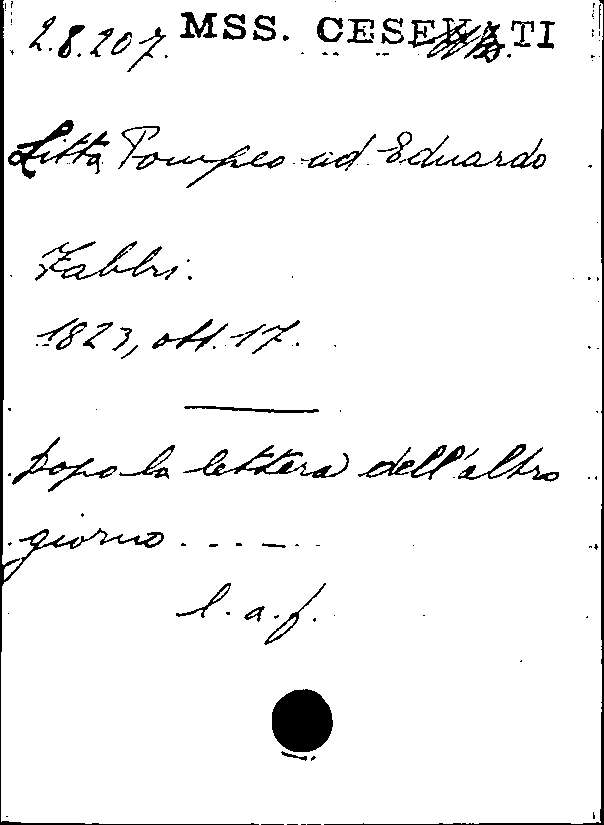 2.8.207. MSS. CESENATI
Litta Pompeo ad Eduardo
Fabbri.
1823, ott. 17.
Dopo la lettera dell'altro
giorno . . . . .
l. a. f.